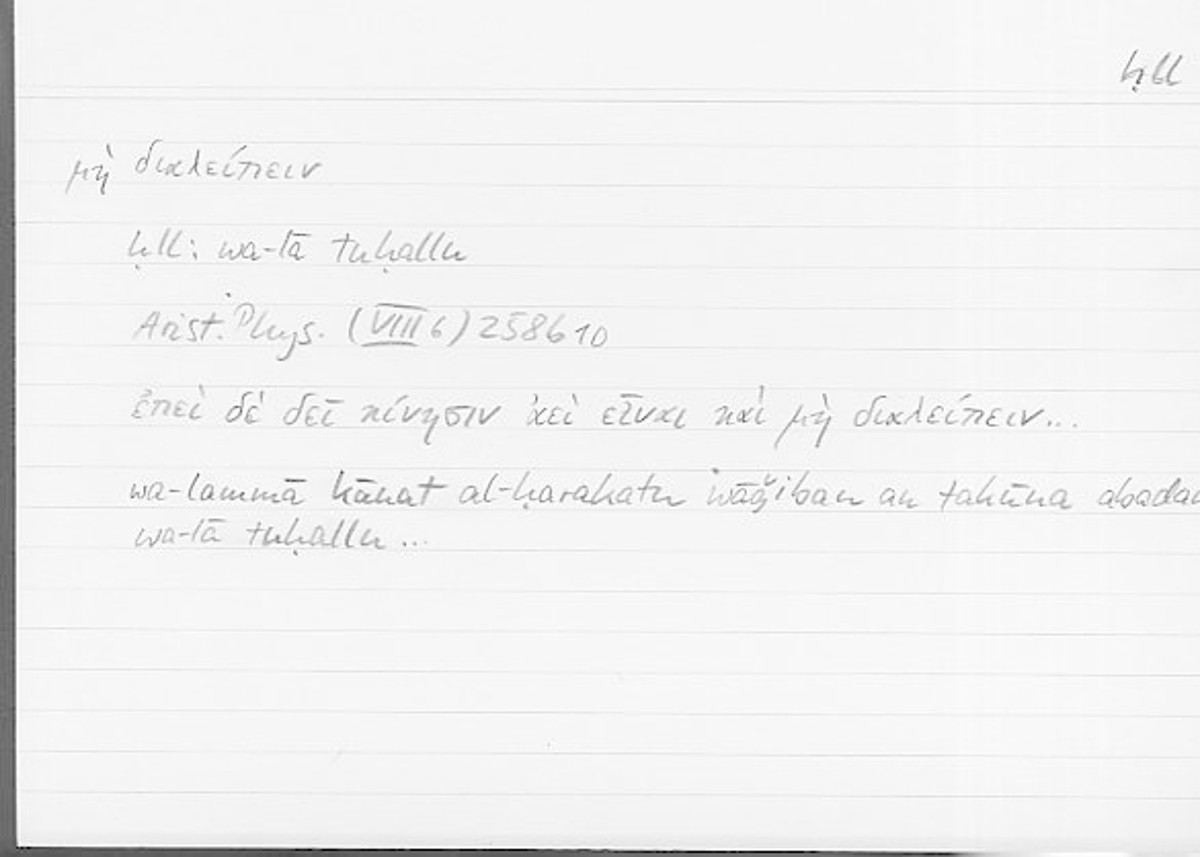 ḥll
μὴ διαλείπειν
ḥll: wa-lā tuḥallu
Arist. Phys. (VIII 6) 258b10
ἐπεὶ δὲ δεῖ κίνησιν ἀεὶ εἶναι καὶ μὴ διαλείπειν...
wa-lammā kānat al-ḥarakatu wāǧiban an takūna abadan
wa-lā tuḥallu...